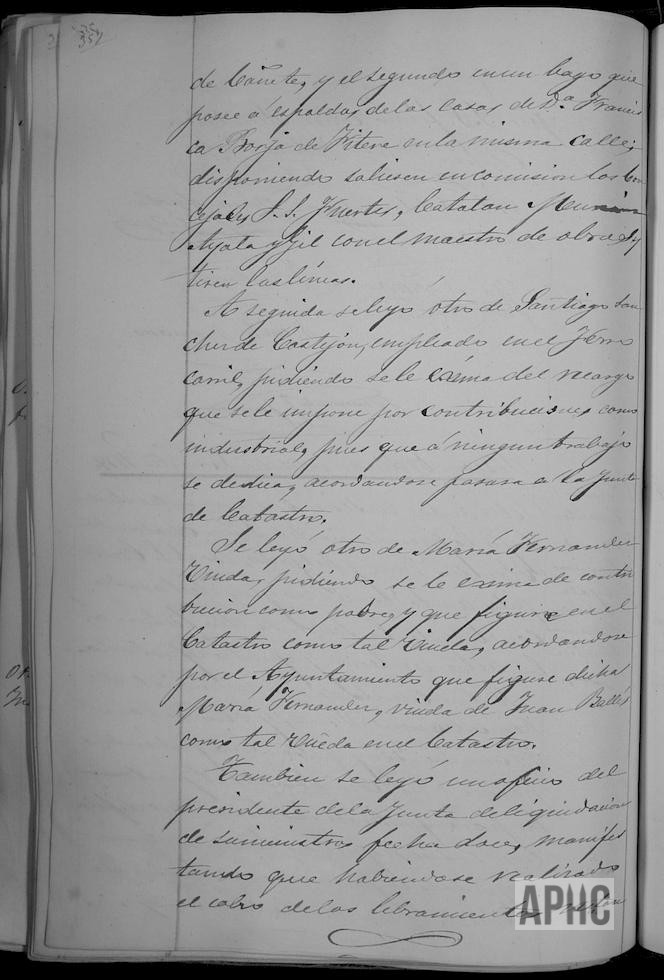 357
de Cañete, y el segundo en un bago que
posee á espaldas de las casas de D.ª Francis
ca Borja de Fitero en la misma calle;
disponiendo saliesen en comision los con
cejales S. S. Fuertes, Catalan
Ayala y Gil con el maestro de obras y
tiren las líneas.
A seguida se leyó otro de Santiago San
chez de Castejón, empleado en el Ferro
carril, pidiendo se le exima del recargo
que se le impone por contribuciones como
industrial, pues que á ningun trabajo
se dedica, acordandose pasara á la Junta
de Catastro.
Se leyó otro de María Fernandez
Viuda, pidiendo se le exima de contri
bucion como pobre, y que figure en el
Catastro como tal Viuda, acordandose
por el Ayuntamiento que figure dicha
María Fernandez, viuda de Juan Ballés
como tal Viuda en el Catastro.
Tambien se leyó un oficio del
presidente de la Junta de liquidacion
de suministros fecha doce, manifes
tando que habiendose realizado
el cobro de los libramientos
APHC